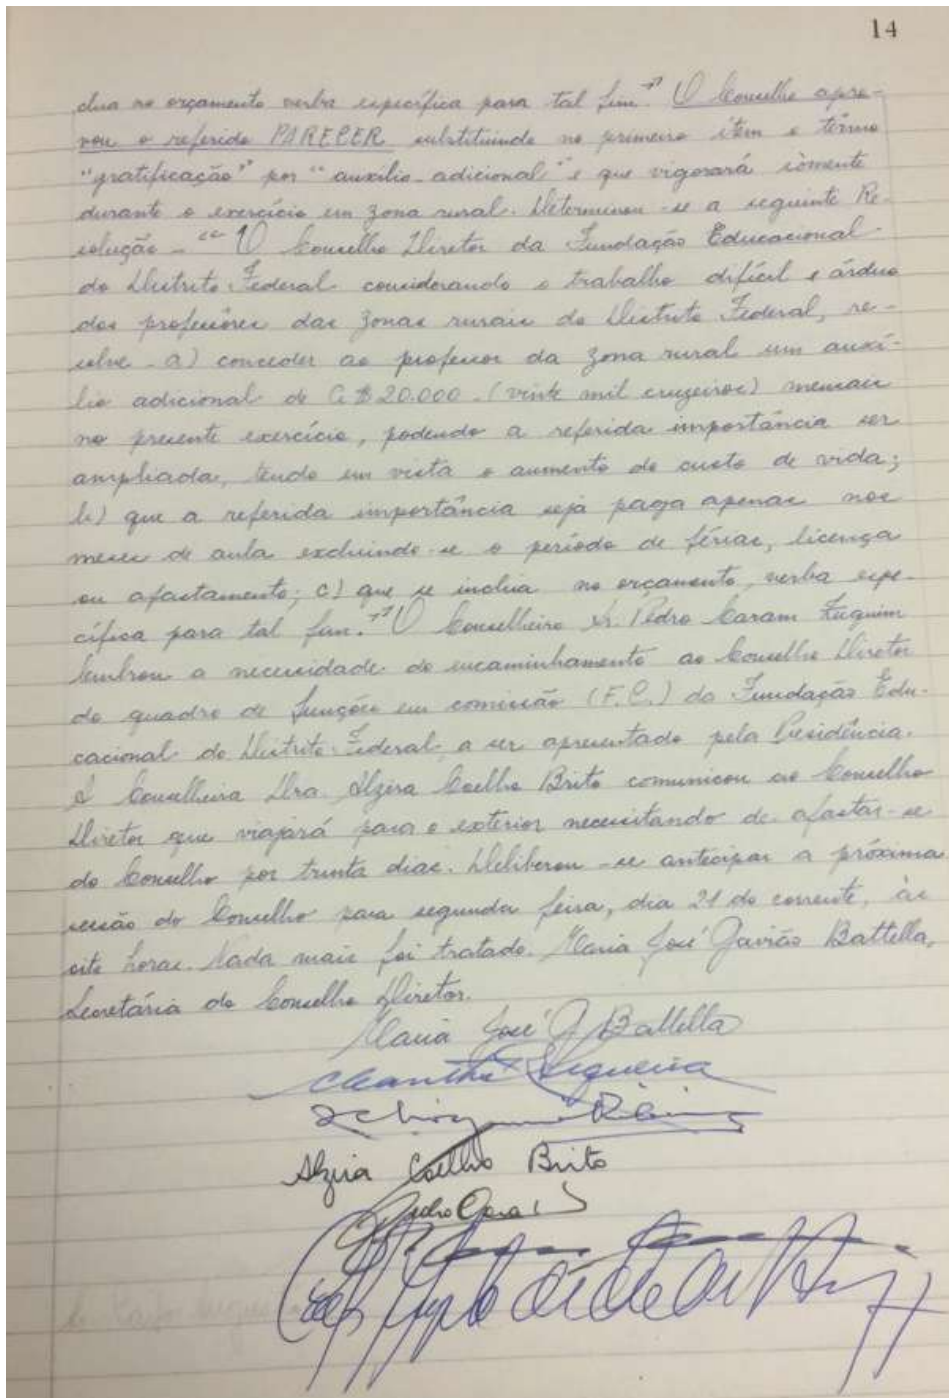 14
clua no orçamento verba específica para tal fim." O Conselho apro-
vou o referido PARECER substituindo no primeiro ítem o têrmo
"gratificação" por "auxílio-adicional" e que vigorará sòmente
durante o exercício em zona rural. Determinou-se a seguinte Re-
solução - "O Conselho Diretor da Fundação Educacional
do Distrito Federal considerando o trabalho difícil e árduo
dos professôres das zonas rurais do Distrito Federal, re-
solve - a) conceder ao professor da zona rural um auxí-
lio adicional de Cr$ 20.000 - (vinte mil cruzeiros) mensais
no presente exercício, podendo a referida importância ser
ampliada, tendo em vista o aumento do custo de vida;
b) que a referida importância seja paga apenas nos
meses de aula excluindo-se o período de férias, licença
ou afastamento; c) que se inclua no orçamento, verba espe-
cífica para tal fim." O Conselheiro Dr. Pedro Caram Zuquim
lembrou a necessidade do encaminhamento ao Conselho Diretor
do quadro de funções em comissão (F.C.) da Fundação Edu-
cacional do Distrito Federal, a ser apresentado pela Presidência.
A Conselheira Dra. Alzira Coelho Brito comunicou ao Conselho
Diretor que viajará para o exterior necessitando de afastar-se
do Conselho por trinta dias. Deliberou-se antecipar a próxima
sessão do Conselho para segunda feira, dia 21 do corrente, às
oito horas. Nada mais foi tratado. Maria José Gavião Battella,
Secretária do Conselho Diretor.
Maria José G. Battella
Cleantho Siqueira
Alzira Coelho Brito